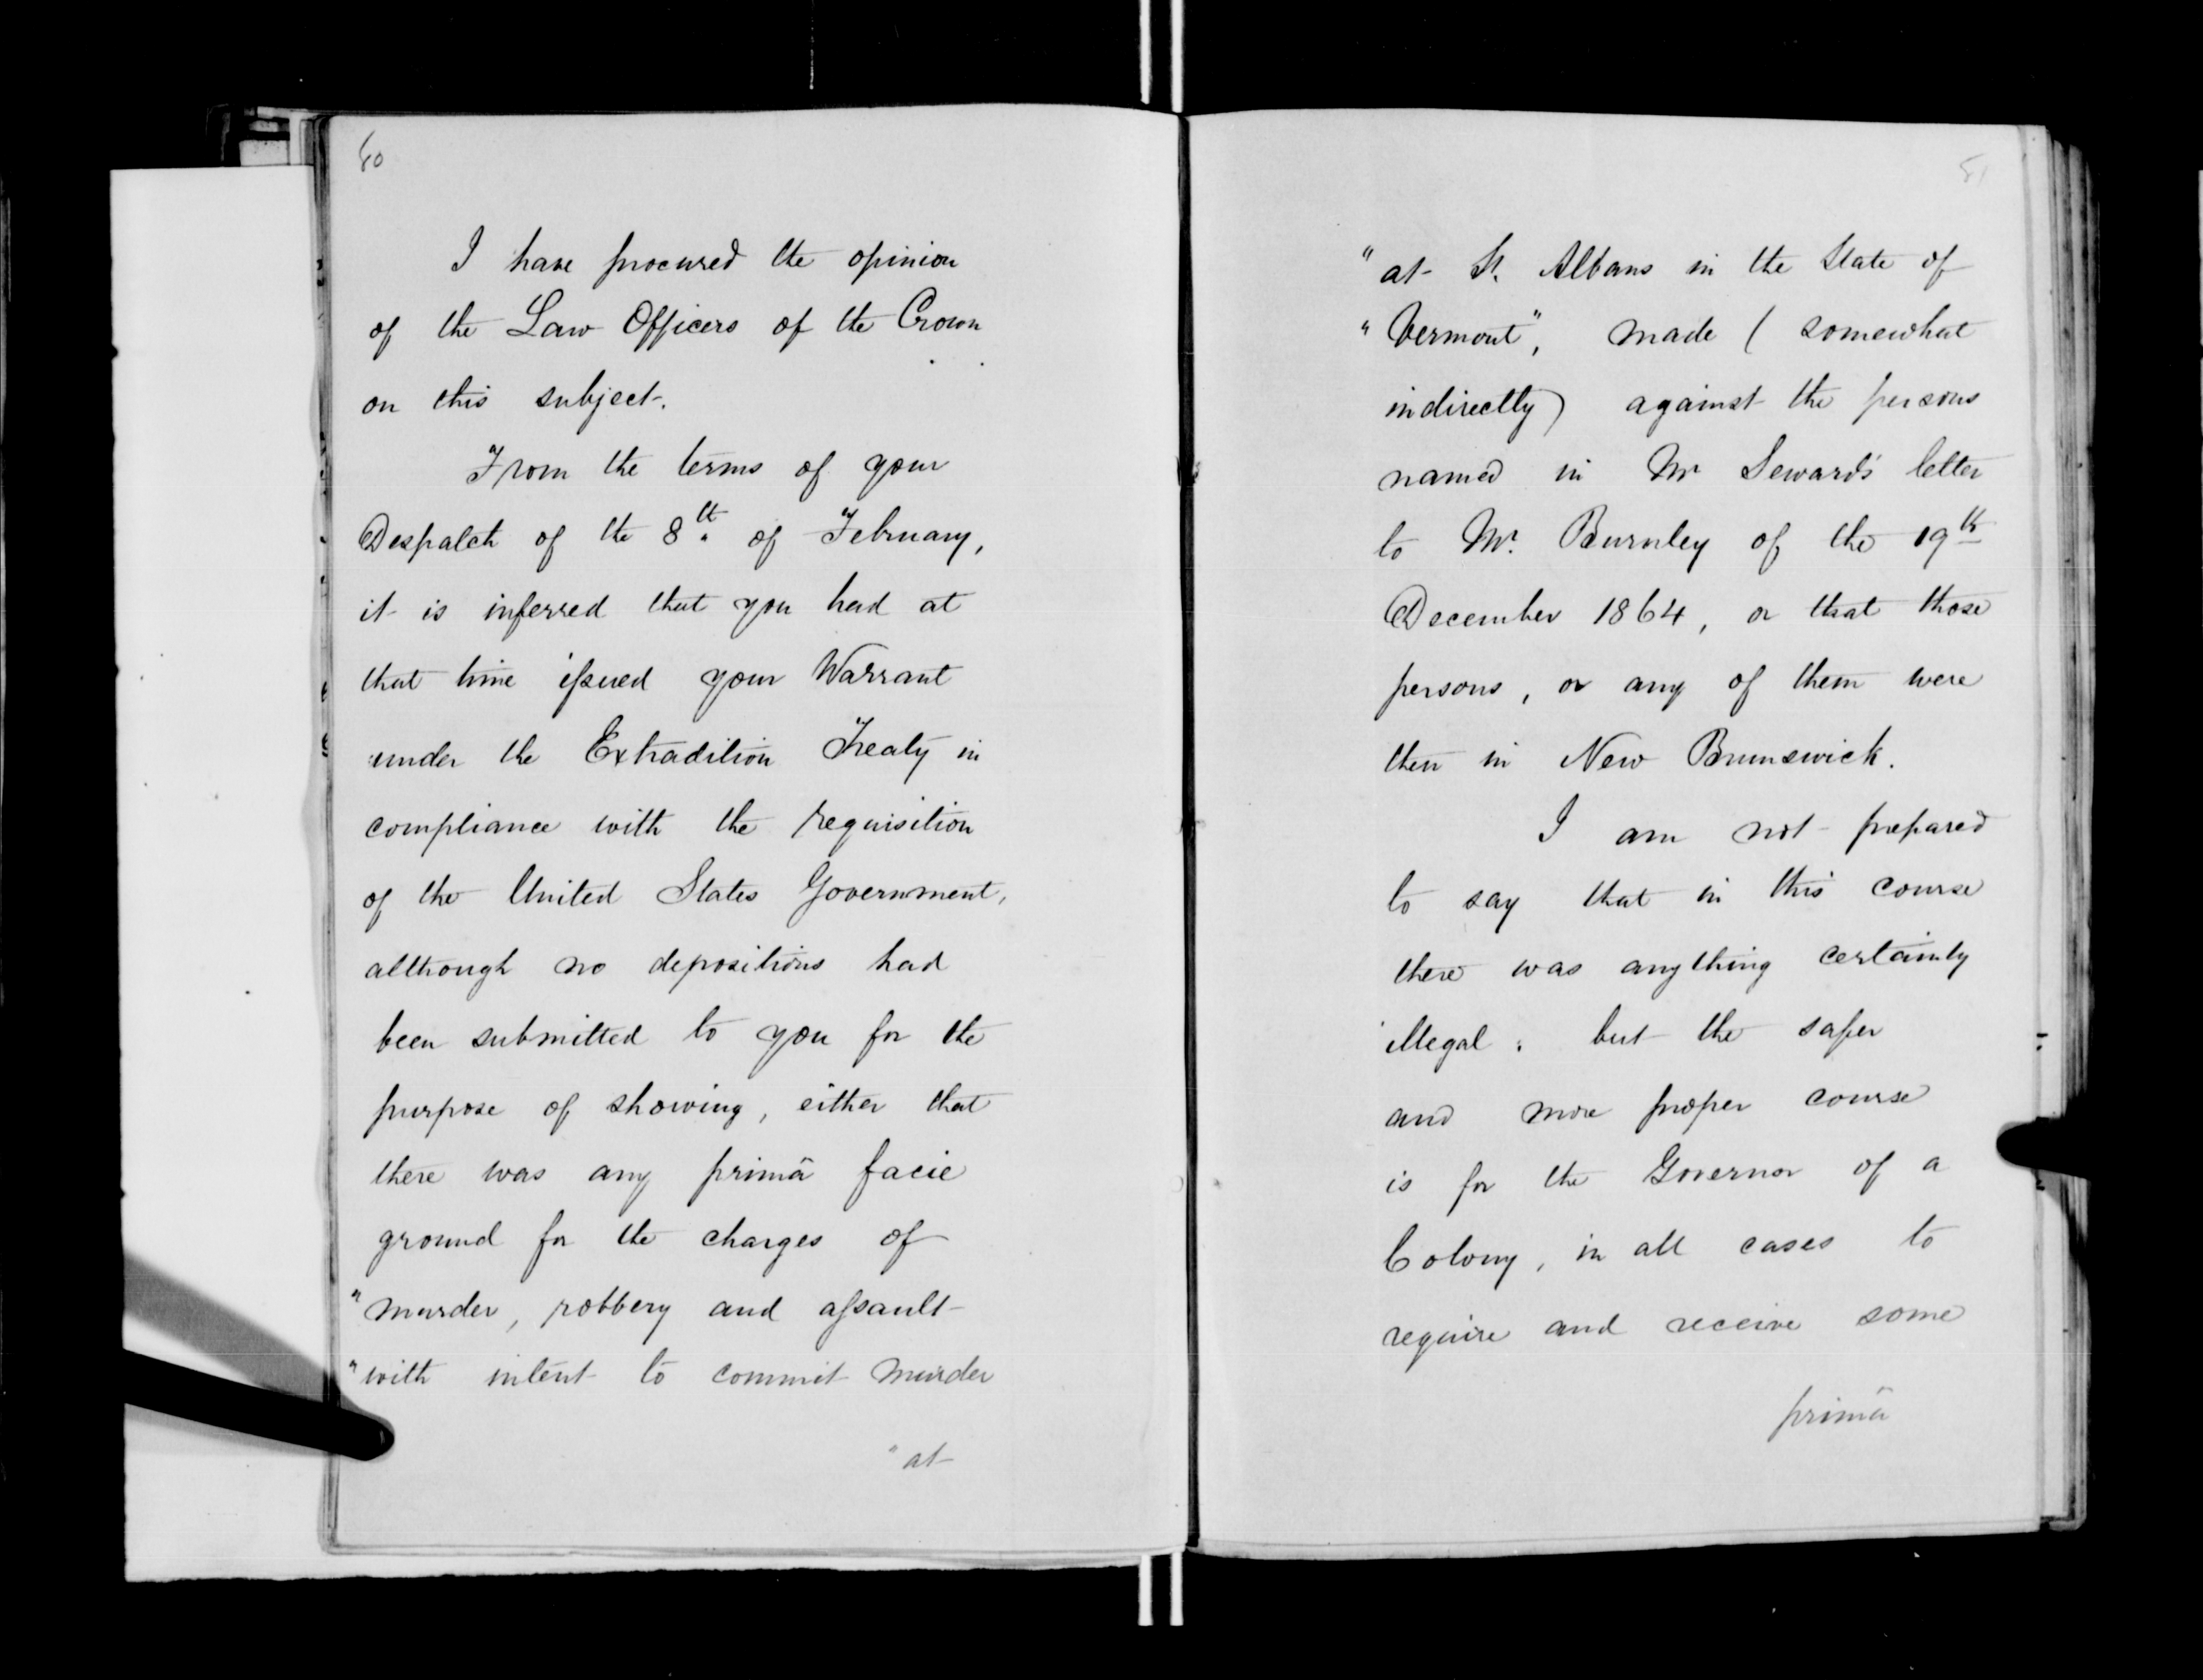 80
I have procured the opinion
of the Law Officers of the Crown
on this subject.
From the terms of your
Despatch of the 8th. of February,
it is inferred that you had at
that time issued your Warrant
under the Extradition Treaty in
compliance with the requisition
of the United States Government,
although no depositions had
been submitted to you for the
purpose of showing, either that
there was any primâ facie
ground for the charges of
"murder, robbery and assault
"with intent to commit murder
"at
81
"at St. Albans in the State of
"Vermont", made (somewhat
indirectly) against the persons
named in Mr Seward's letter
to Mr. Burnley of the 19th
December 1864, or that those
persons, or any of them were
then in New Brunswick.
I am not prepared
to say that in this course
there was anything certainly
illegal: but the safer
and more proper course
is for the Governor of a
Colony, in all cases to
require and receive some
primâ